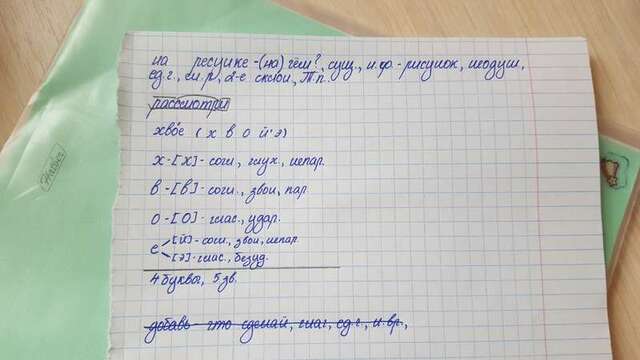 на рисунке - (на) чём?, сущ., н.ф. - рисунок, неодуш,
ед.г., м.р, 2-е склон, П.п.
рассмотри
хво́е ( х в о й' э)
х - [х] - согл., глух, непар.
в - [в] - согл., звон, пар
о - [о] - глас., удар.
е [й] - согл., звон, непар.
[э] - глас., безуд.
4 буквы, 5 зв.
добавь - что сделай, глаг, ед.г., н.вр.,